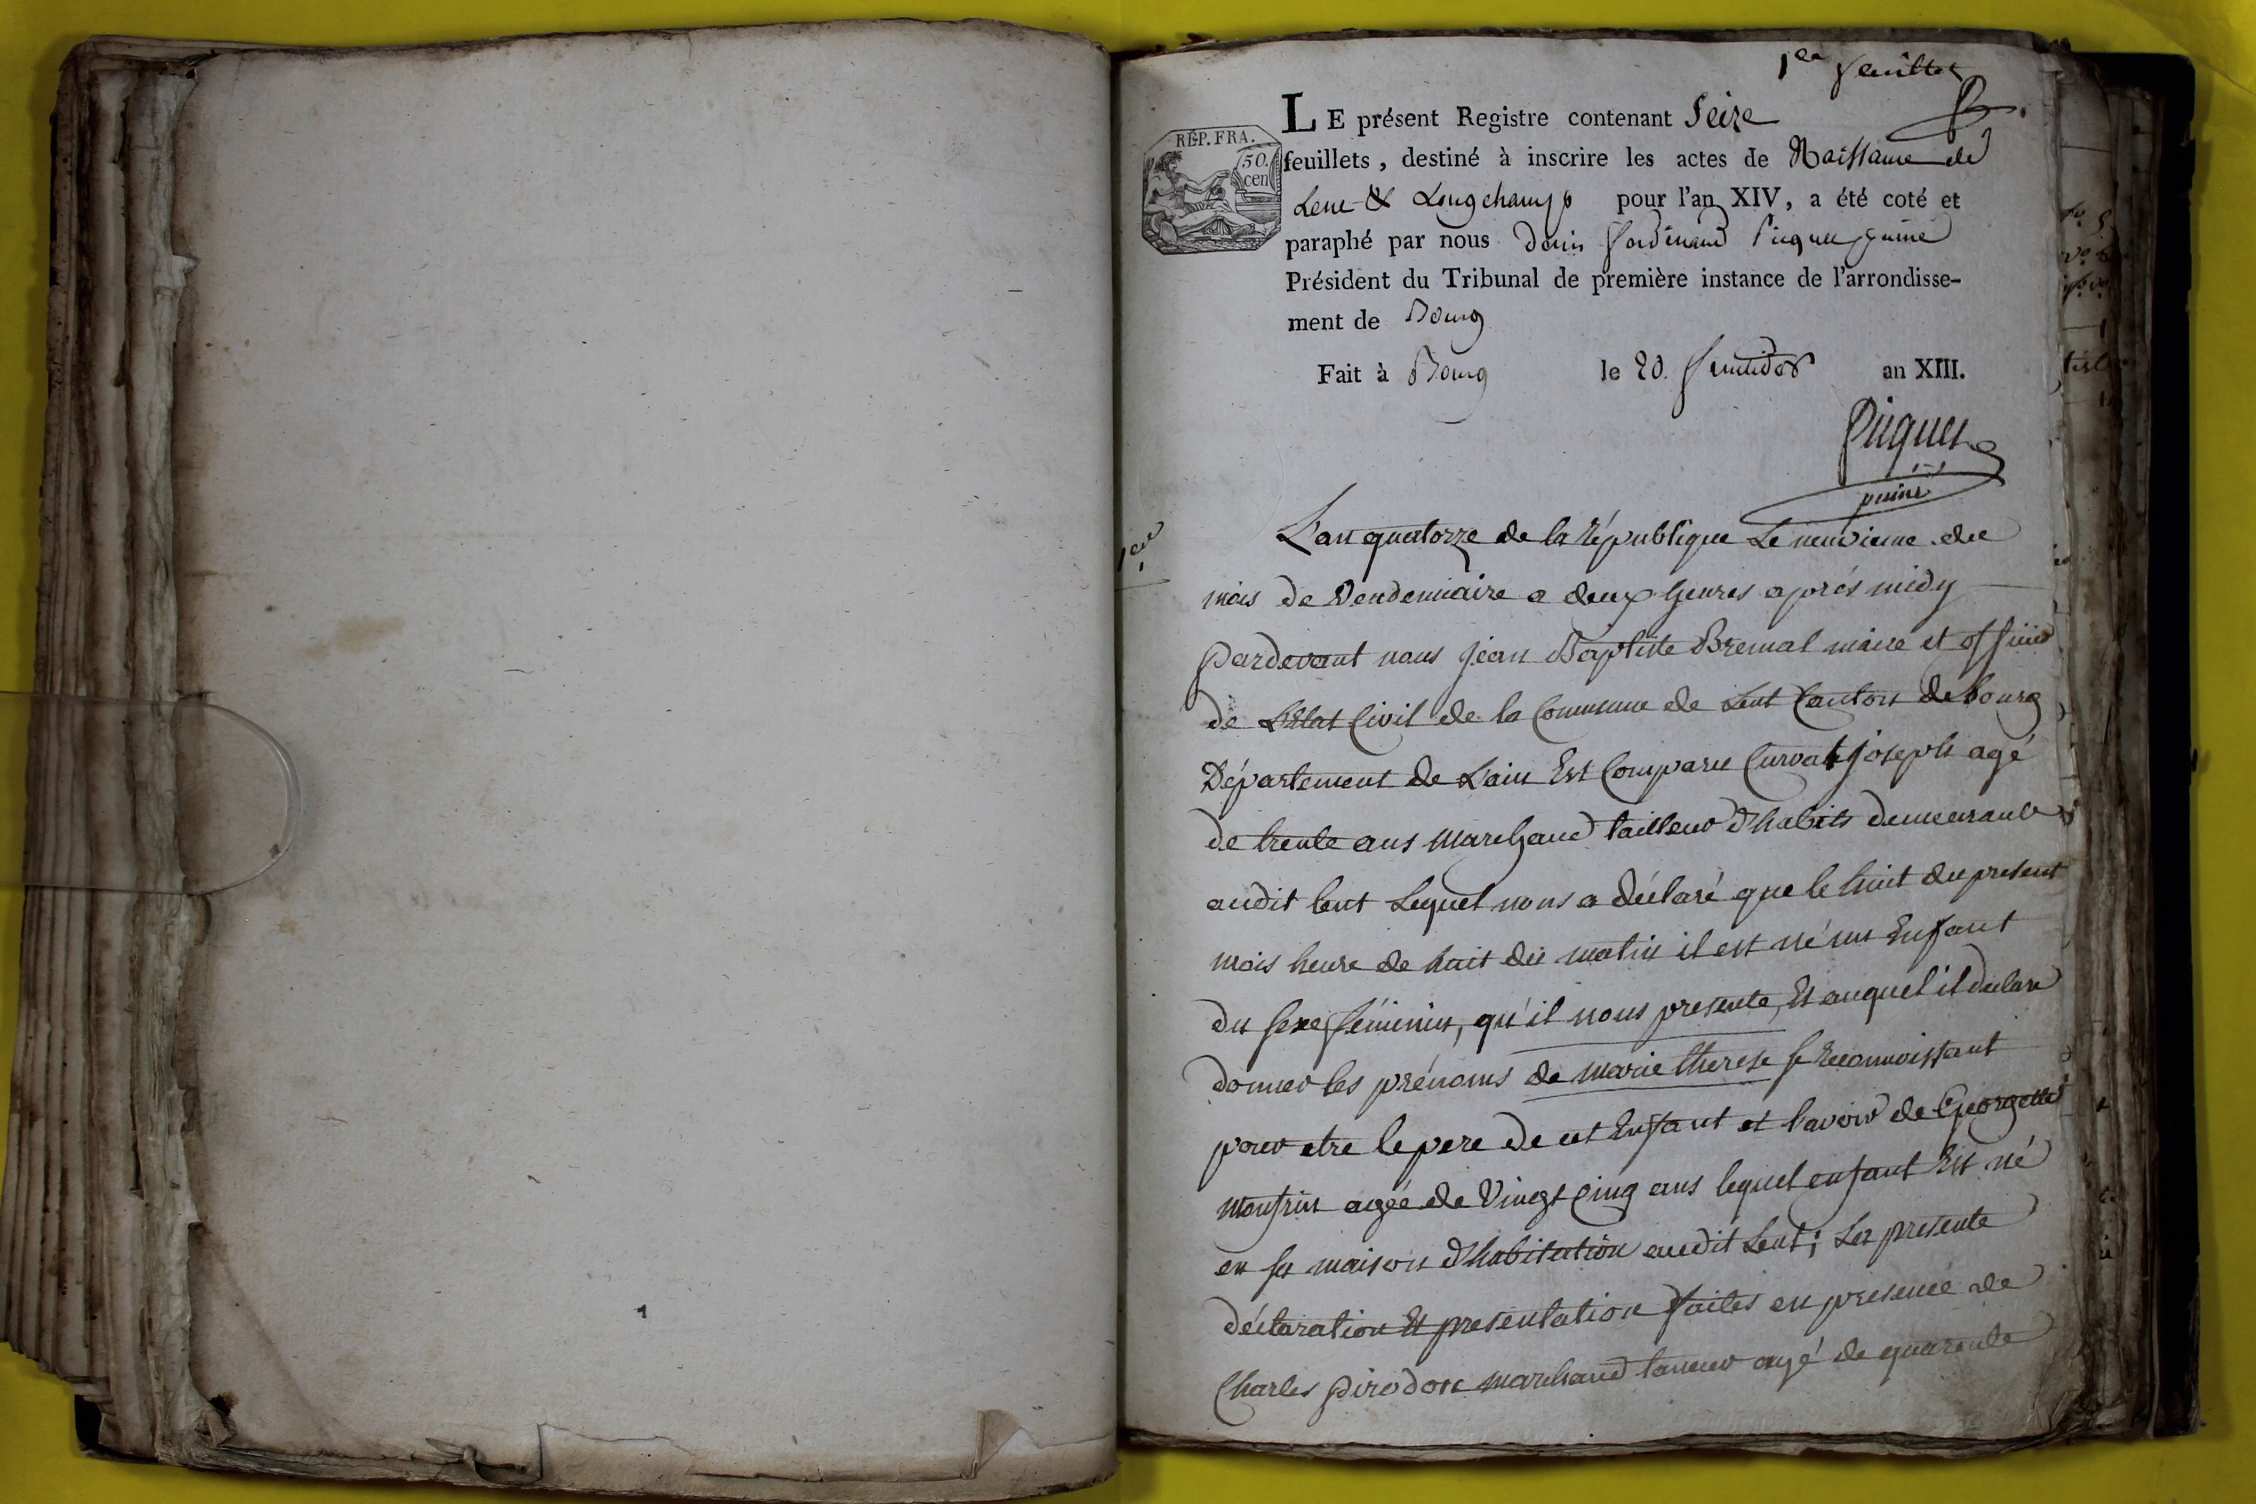 1er feuillet
LE présent Registre contenant Seize
feuillets, destiné à inscrire les actes de Naissance de
Lent & Longchamp pour l'an XIV, a été coté et
paraphé par nous Denis ferdinand Picquet puiné
Président du Tribunal de première instance de l'arrondisse-
ment de Bourg
Fait à Bourg le 20. fructidor an XIII.
RÉP. FRA.
50.
cen
Picquet
puiné
1ere
L'an quatorze de la république Le neuvieme du
mois de Vendemiaire a deux heures aprés midy
Pardevant nous jean Baptiste Bremal maire et officier
de L'Etat Civil de la Commune de Lent Canton de bourg
Département de L'ain Est Comparu Curvat joseph agé
de trente ans marchand tailleur d'habits demeurant
audit lent Lequel nous a déclaré que le huit du present
mois heure de huit du matin il est né un Enfant
du sexe féminin, qu'il nous presente, Et auquel il declare
donner les prénoms de marie therese se reconnoissant
pour etre le pere de cet Enfant et l'avoir de Georgette
monfrin agée de Vingt Cinq ans lequel enfant Est né
en sa maison d'habitation audit Lent; Les presente
déclaration Et presentation faites en presence de
Charles Pirodon marchand tanneur agé de quarante